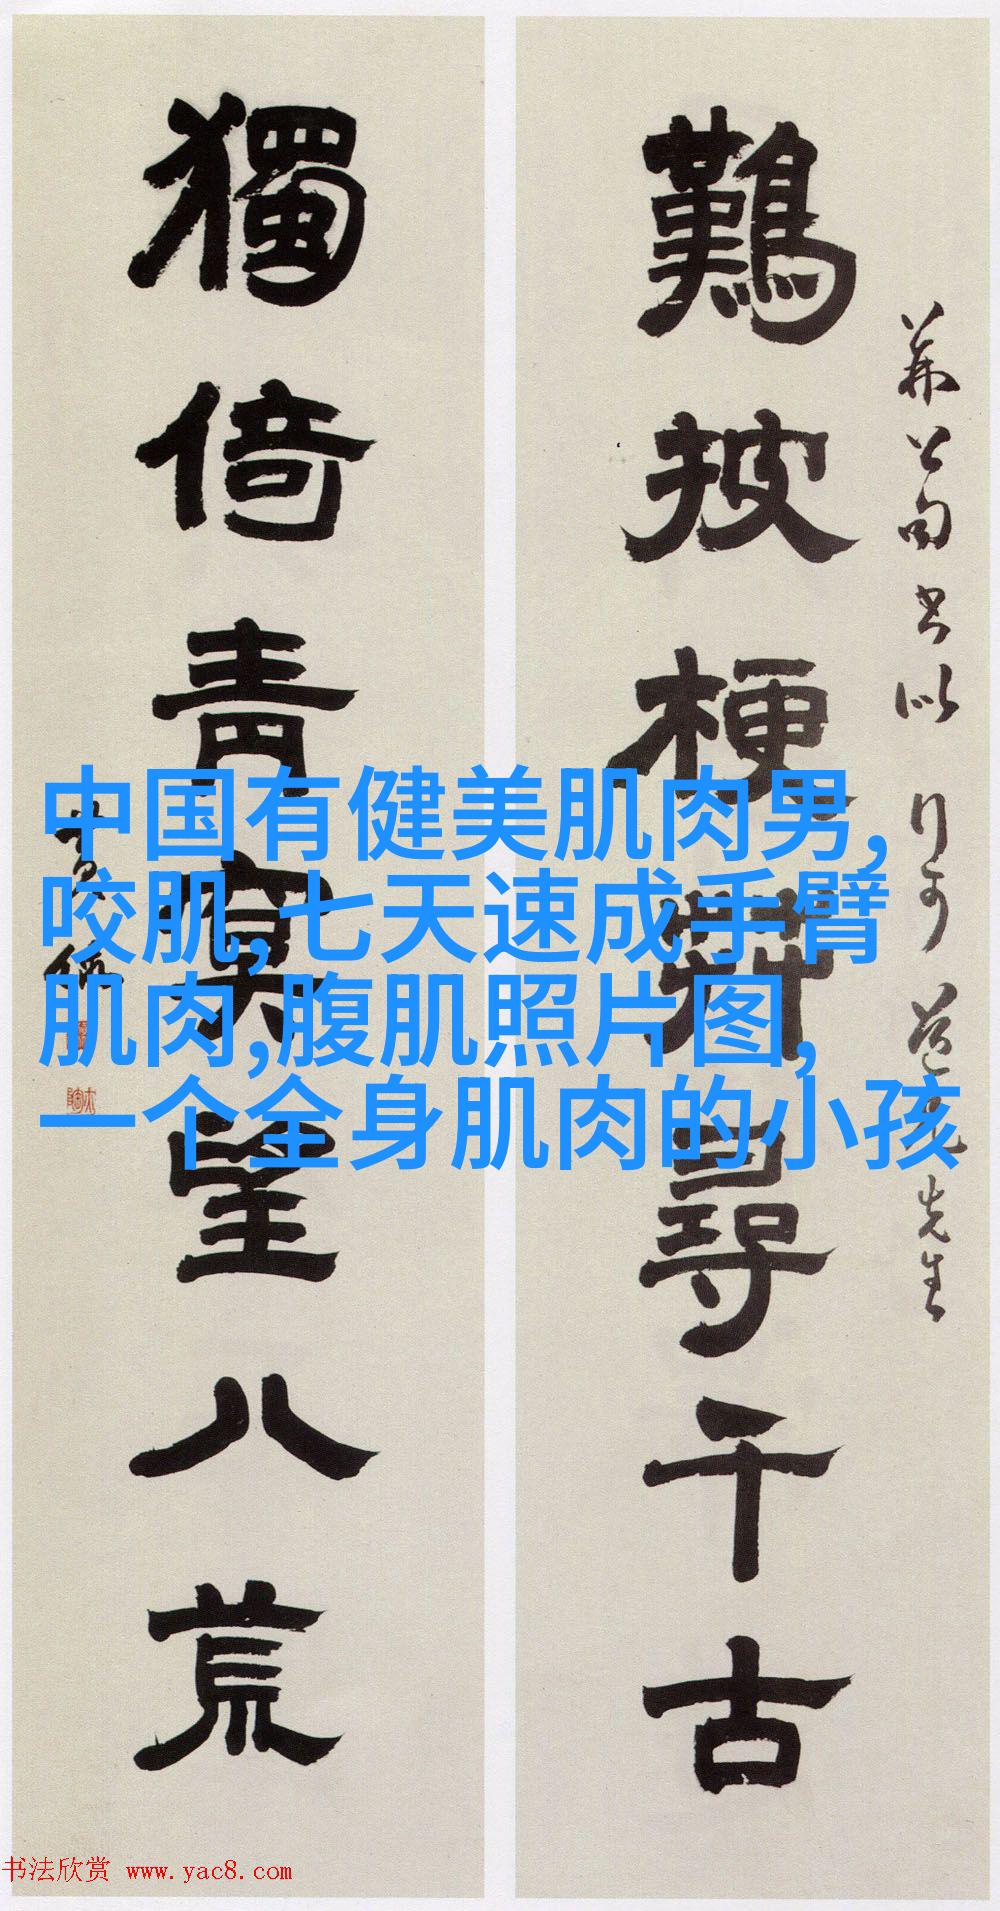 難披榛莽尋千古
獨倚青冥望八荒
中国有健美肌肉男,
咬肌,七天速成手臂
肌肉,腹肌照片图,
一个全身肌肉的小孩
先生
书法欣赏 www.yac8.com